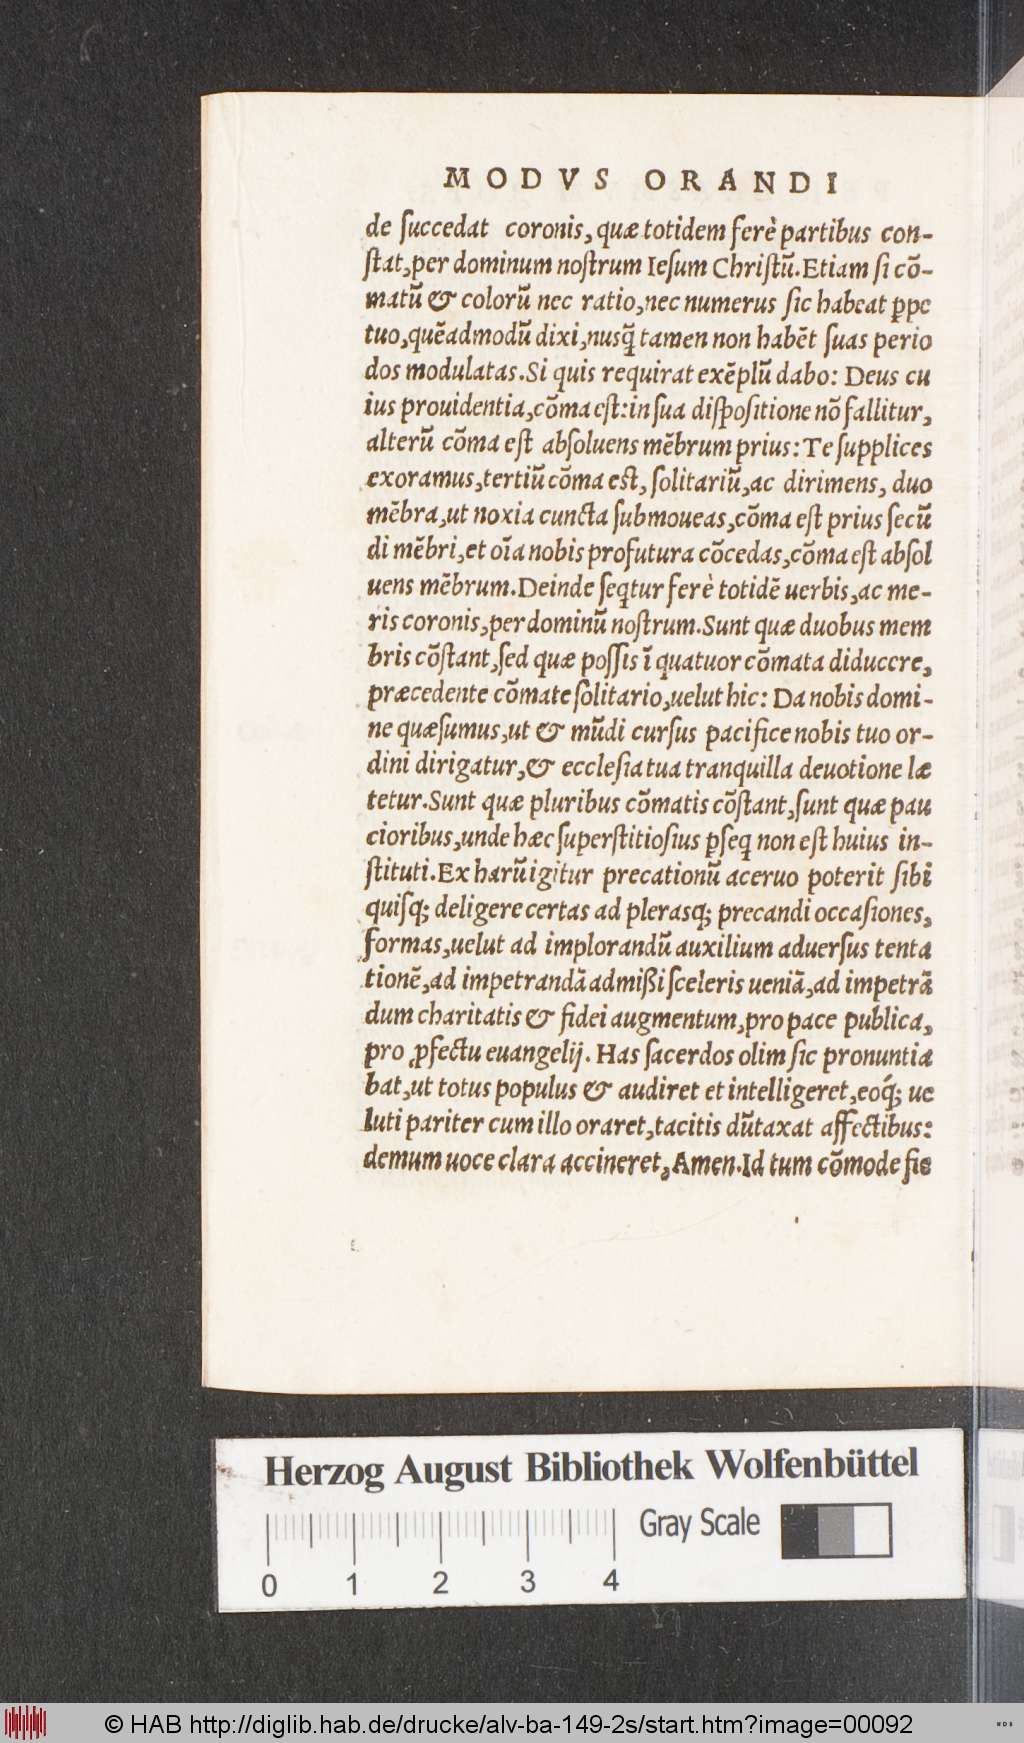 MODVS ORANDI
de ſuccedat coronis, quæ totidem ferè partibus con-
ſtat, per dominum noſtrum Ieſum Chriſtũ. Etiam ſi cõ-
matũ & colorũ nec ratio, nec numerus ſic habeat ꝑpe
tuo, quẽadmodũ dixi, nusq̃ tamen non habẽt ſuas perio
dos modulatas. Si quis requirat exẽplũ dabo: Deus cu
ius prouidentia, cõma eſt: in ſua diſpoſitione nõ fallitur,
alterũ cõma eſt abſoluens mẽbrum prius: Te ſupplices
exoramus, tertiũ cõma est, ſolitariũ, ac dirimens, duo
mẽbra, ut noxia cuncta ſubmoueas, cõma eſt prius ſecũ
di mẽbri, et oĩa nobis profutura cõcedas, cõma eſt abſol
uens mẽbrum. Deinde ſeq̃tur ferè totidẽ uerbis, ac me-
ris coronis, per dominũ noſtrum. Sunt quæ duobus mem
bris cõſtant, ſed quæ poſſis ĩ quatuor cõmata diducere,
præcedente cõmate ſolitario, uelut hic: Da nobis domi-
ne quæſumus, ut & mũdi curſus pacifice nobis tuo or-
dini dirigatur, & eccleſia tua tranquilla deuotione læ
tetur. Sunt quæ pluribus cõmatis cõſtant, ſunt quæ pau
cioribus, unde hæc ſuperſtitioſius ꝑſeq̃ non eſt huius in-
ſtituti. Ex harũ igitur precationũ aceruo poterit ſibi
quiſq; deligere certas ad plerasq; precandi occaſiones,
formas, uelut ad implorandũ auxilium aduerſus tenta
tionẽ, ad impetrandã admißi ſceleris ueniã, ad impetrã
dum charitatis & fidei augmentum, pro pace publica,
pro ꝓfectu euangelij. Has ſacerdos olim ſic pronuntia
bat, ut totus populus & audiret et intelligeret, eoq́; ue
luti pariter cum illo oraret, tacitis dũtaxat affectibus:
demum uoce clara accineret, Amen. Id tum cõmode fie
Herzog August Bibliothek Wolfenbüttel
Gray Scale
0 1 2 3 4
© HAB http://diglib.hab.de/drucke/alv-ba-149-2s/start.htm?image=00092